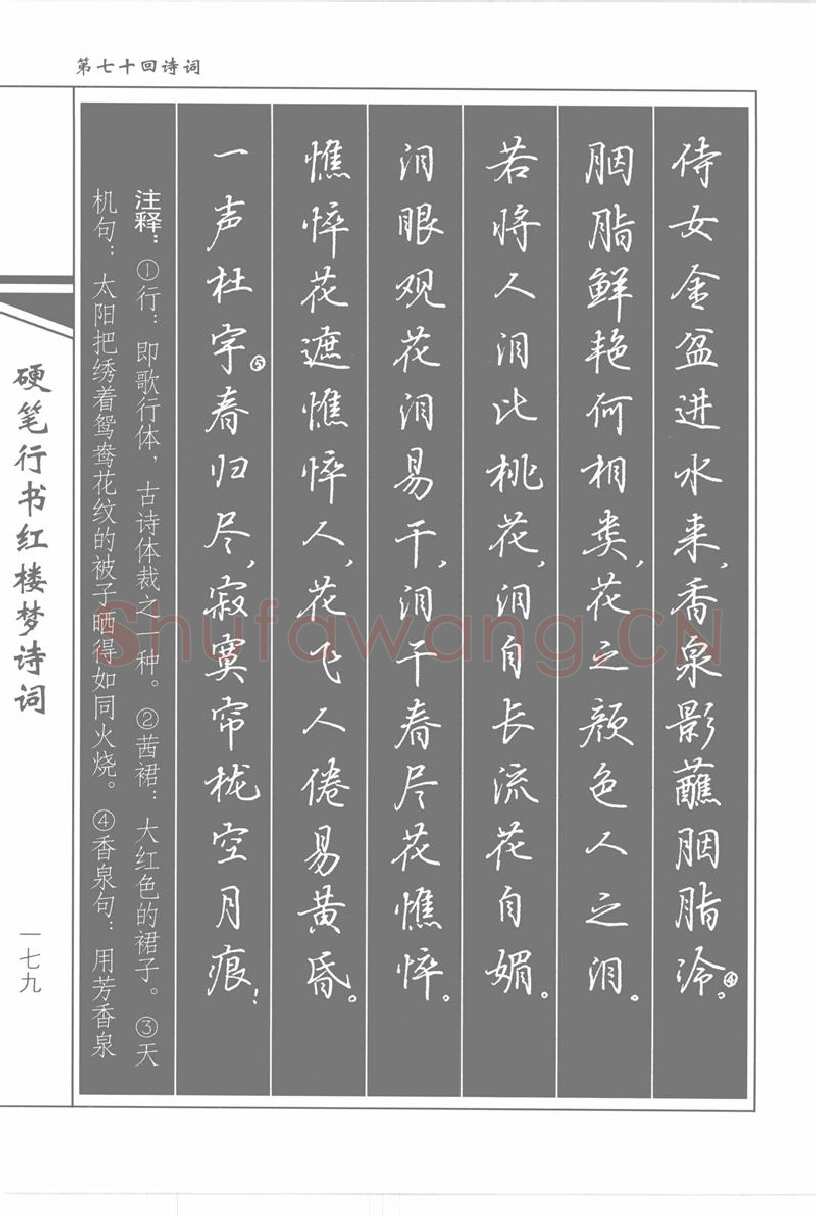 第七十回诗词
侍女金盆进水来，香泉影蘸胭脂冷④。
胭脂鲜艳何相类，花之颜色人之泪。
若将人泪比桃花，泪自长流花自媚。
泪眼观花泪易干，泪干春尽花憔悴。
憔悴花遮憔悴人，花飞人倦易黄昏。
一声杜宇⑤春归尽，寂寞帘栊空月痕！
注释：①行：即歌行体，古诗体裁之一种。②茜裙：大红色的裙子。③天
机句：太阳把绣着鸳鸯花纹的被子晒得如同火烧。④香泉句：用芳香泉
硬笔行书红楼梦诗词
一七九
Shufawang.CN